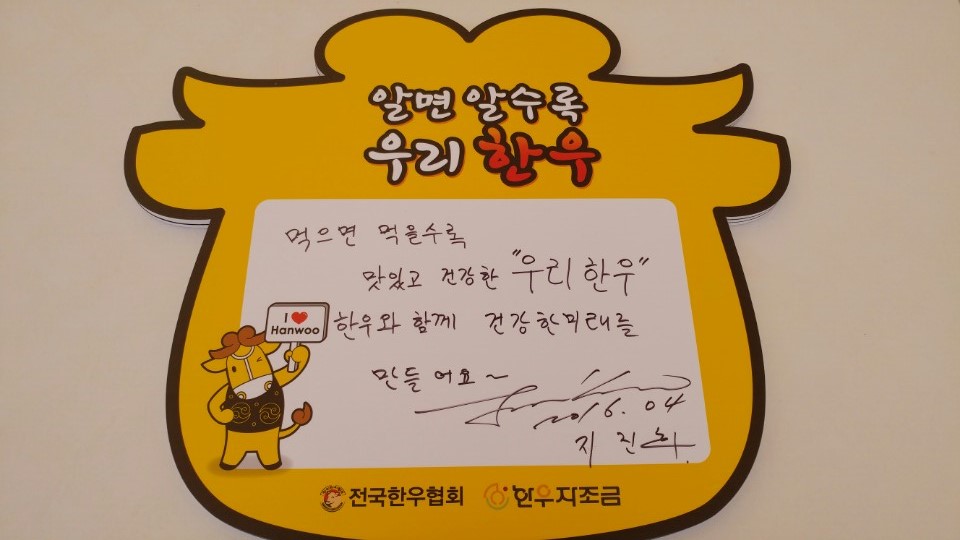 알면 알수록
우리 한우
먹으면 먹을수록
맛있고 건강한 "우리한우"
I ♥
Hanwoo
한우와 함께 건강한미래를
만들어요~
2016. 04
지진희
전국한우협회 한우자조금